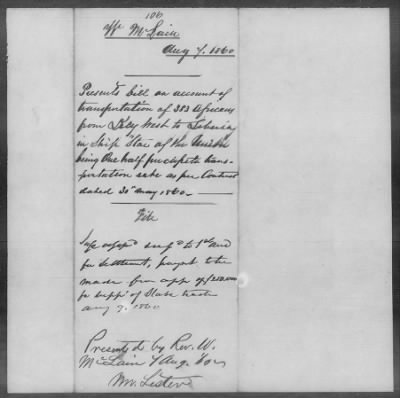 106
Wm McLain
Aug 7. 1860
Presents bill on account of
transportation of 383 Africans
from Key West to Liberia
in Ship "Star of the Union"
being one half pr capita trans-
portation rate as per Contract
dated 30" May 1860.
File
and
for settlement, paymt to be
made from app of
for supp of Slave trade
Aug 7. 1860
Presented by Rev. W.
McLain 7 Aug. 60
Mr.